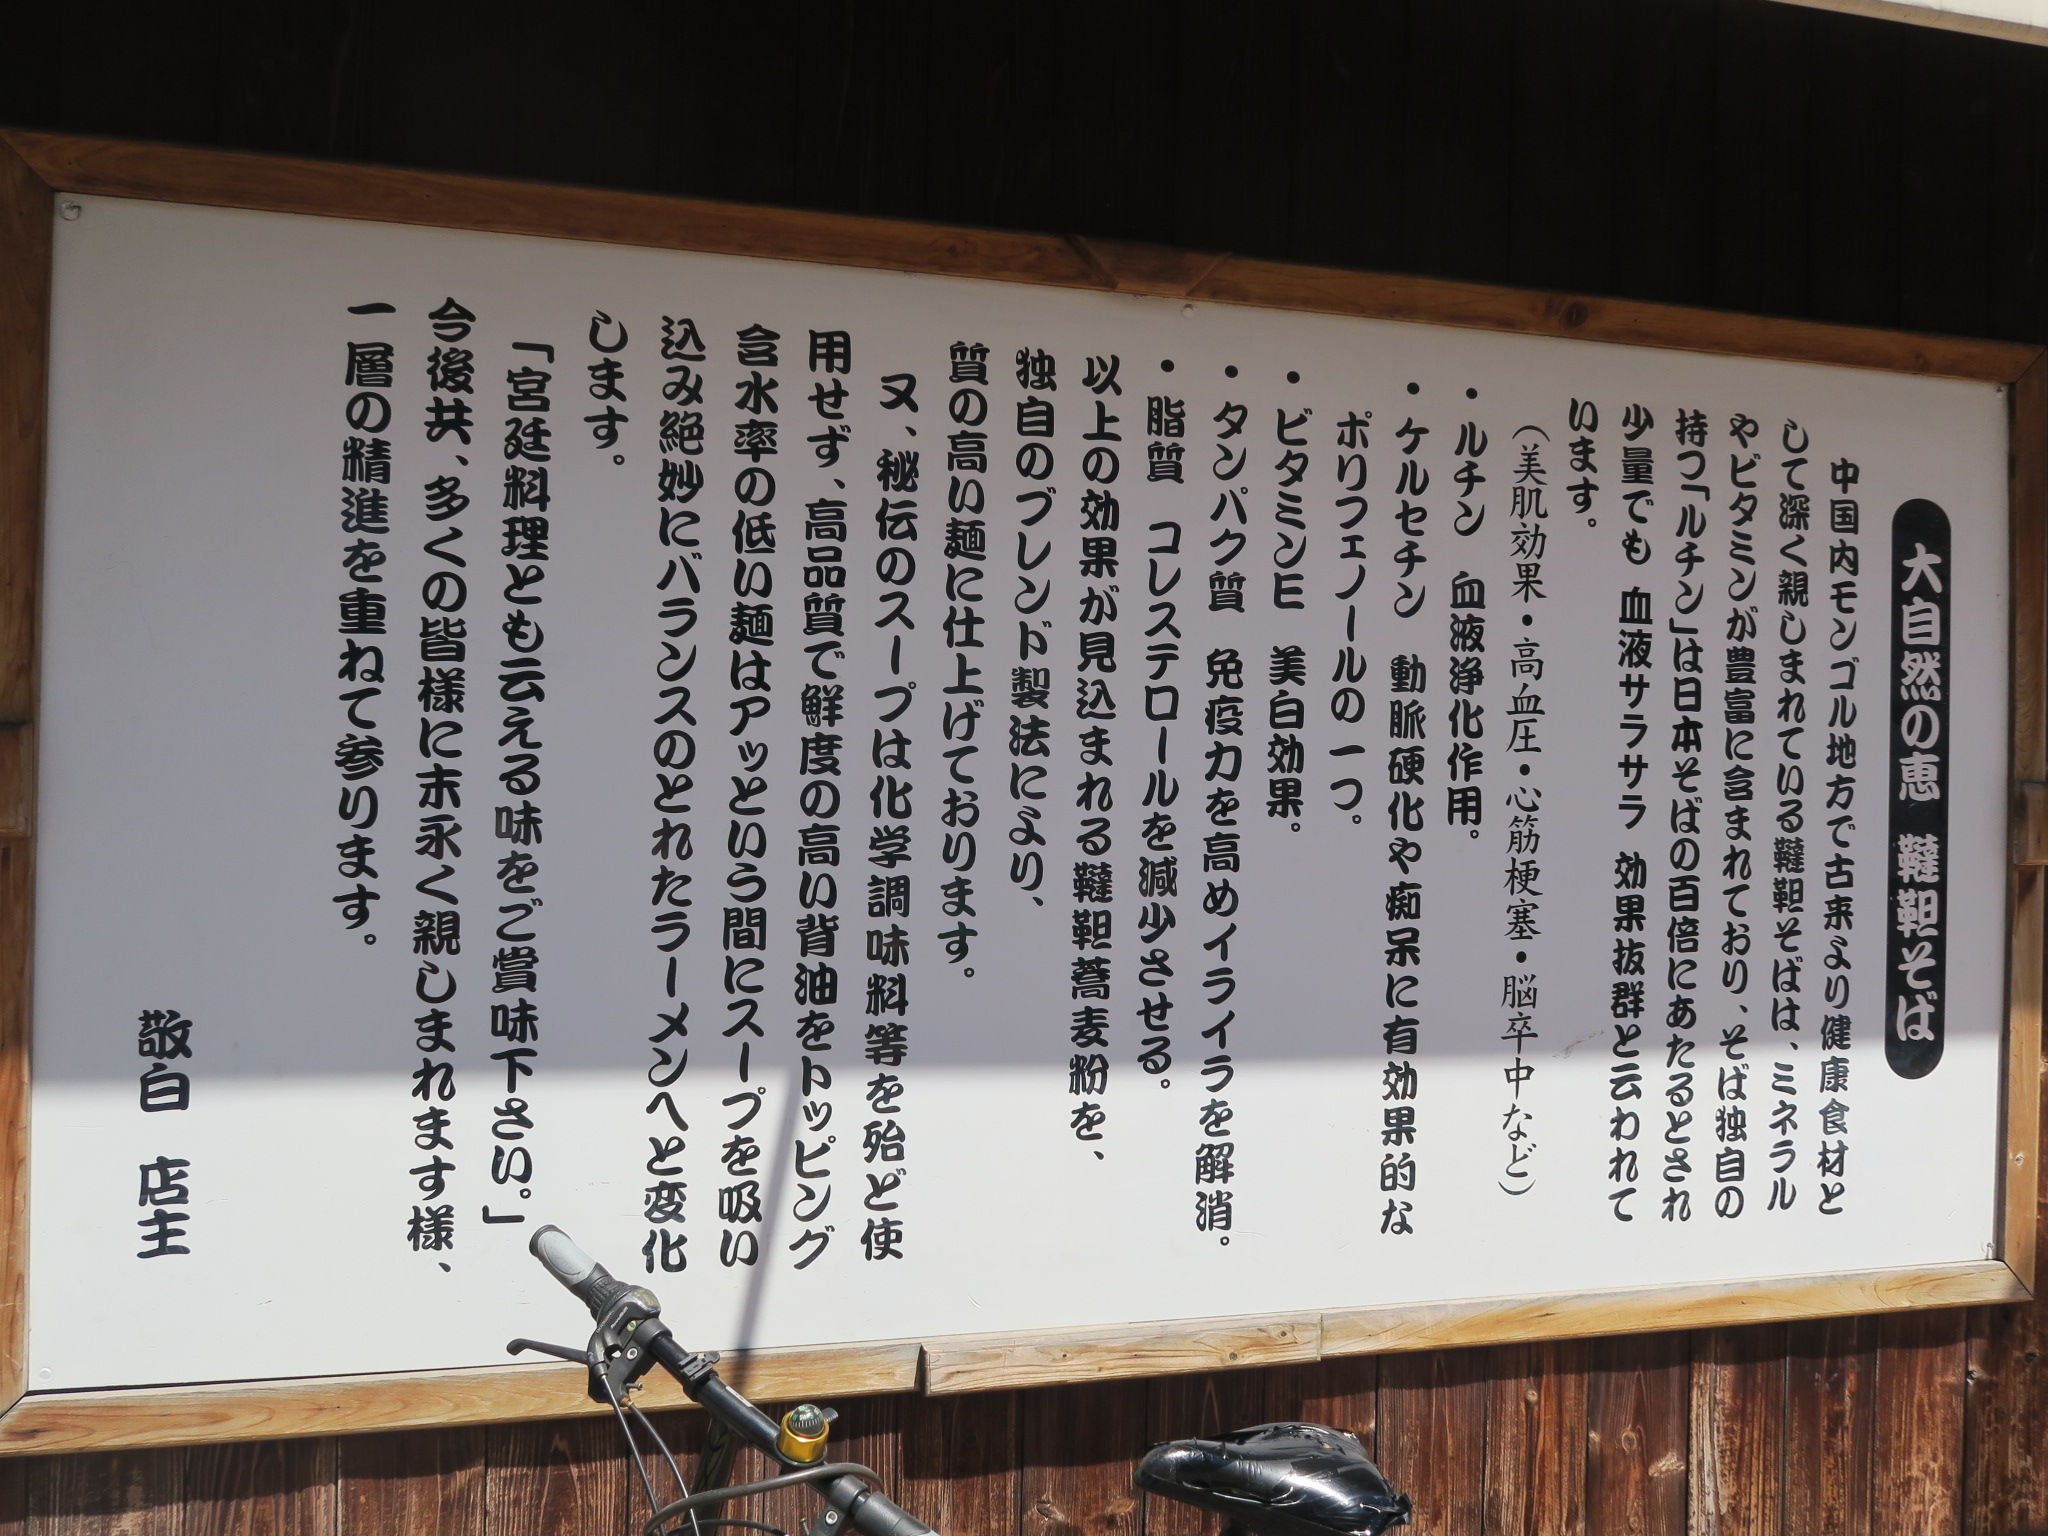 大自然の恵　韃靼そば
中国内モンゴル地方で古来より健康食材と
して深く親しまれている韃靼そばは、ミネラル
やビタミンが豊富に含まれており、そば独自の
持つ「ルチン」は日本そばの百倍にあたるとされ
少量でも 血液サラサラ 効果抜群と云われて
います。
（美肌効果・高血圧・心筋梗塞・脳卒中など）
・ルチン　血液浄化作用。
・ケルセチン　動脈硬化や痴呆に有効果的な
ポリフェノールの一つ。
・ビタミンE　美白効果。
・タンパク質　免疫力を高めイライラを解消。
・脂質　コレステロールを減少させる。
以上の効果が見込まれる韃靼蕎麦粉を、
独自のブレンド製法により、
質の高い麺に仕上げております。
又、秘伝のスープは化学調味料等を殆ど使
用せず、高品質で鮮度の高い背油をトッピング
含水率の低い麺はアッという間にスープを吸い
込み絶妙にバランスのとれたラーメンへと変化
します。
「宮廷料理とも云える味をご賞味下さい。」
今後共、多くの皆様に末永く親しまれます様、
一層の精進を重ねて参ります。
敬白　店主